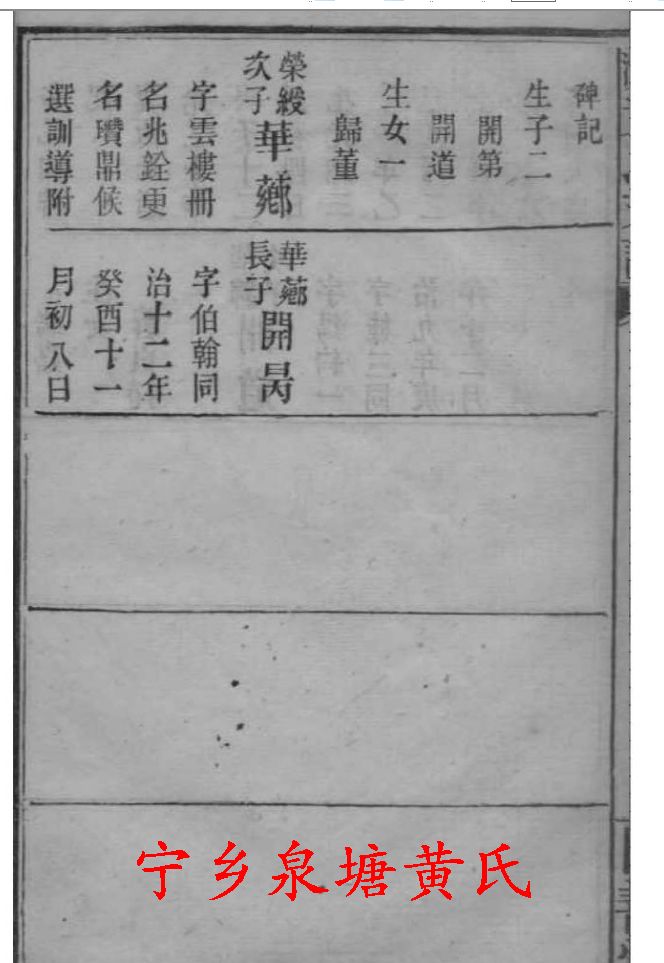 碑記
生子二
開第
開道
生女一
歸董
榮綬
次子
華薌
字雲樓冊
名兆銓更
名瓚鼎候
選訓導附
華薌
長子
開昺
字伯翰同
治十二年
癸酉十一
月初八日
宁乡泉塘黄氏